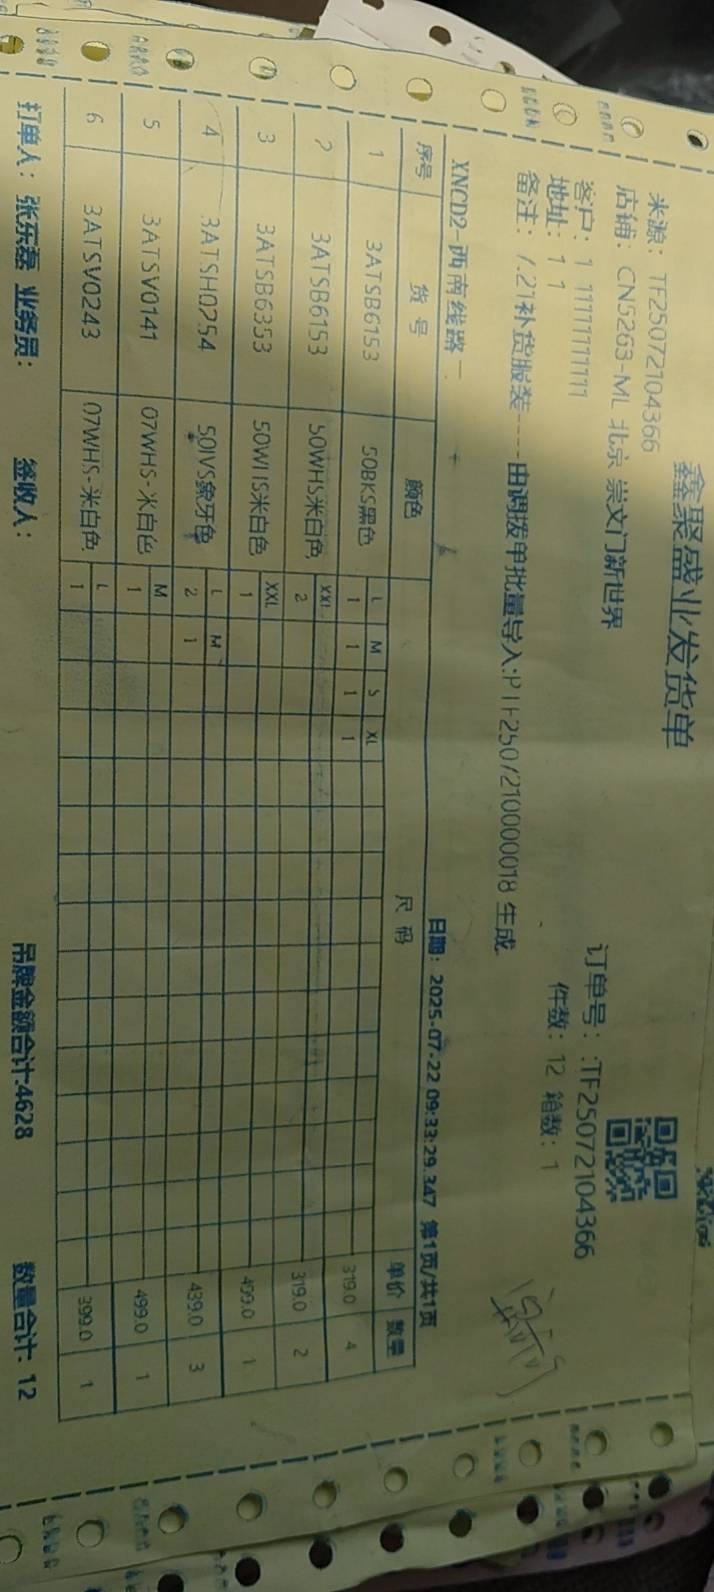 鑫聚盛业发货单
来源：TF25072104366
店铺：CN5263-ML 北京 崇文门新世界
订单号：:TF25072104366
客户：1 11111111111
件数：12 箱数：1
地址：1 1
备注：7.21补货服装----由调拨单批量导入:PTF250721000018 生成
XNCD2-西南线路一
日期：2025-07-22 09:33:29.347 第1页/共1页
序号 货号 颜色 尺码 单价 数量
1 3ATSB6153 50BKS黑色 L M S XL 319.0 4
1 1 1 1
2 3ATSB6153 50WHS米白色 XXL 319.0 2
2
3 3ATSB6353 50WHS米白色 XXL 499.0 1
1
4 3ATSH0254 50IVS象牙色 L M 439.0 3
2 1
5 3ATSV0141 07WHS-米白色 M 499.0 1
1
6 3ATSV0243 07WHS-米白色 L 399.0 1
1
打单人：张东磊 业务员： 签收人： 吊牌金额合计:4628 数量合计：12